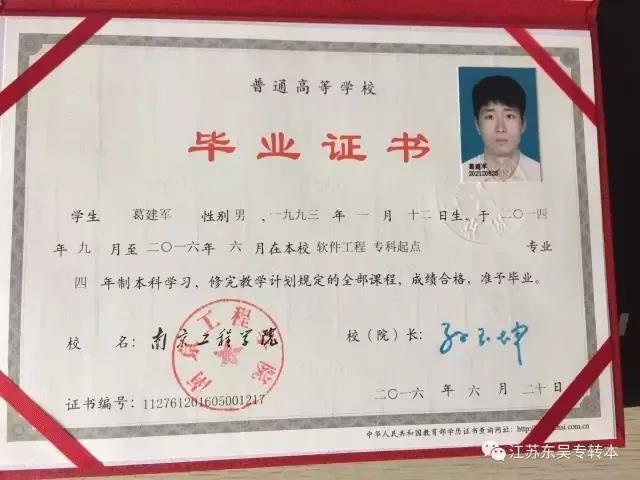 普通高等学校
毕业证书
葛建军
202120835
学生 葛建军 性别 男 ,一九九三 年 一 月 十二 日生,于 二〇一四
年 九 月至 二〇一六 年 六 月在本校 软件工程 专科起点 专业
四 年制本科学习,修完教学计划规定的全部课程,成绩合格,准予毕业。
校 名: 南京工程学院
校(院)长:
南京工程学院
证书编号: 112761201605001217
二〇一六 年 六 月 二十 日
中华人民共和国教育部学历证书查询网址:
江苏东吴专转本